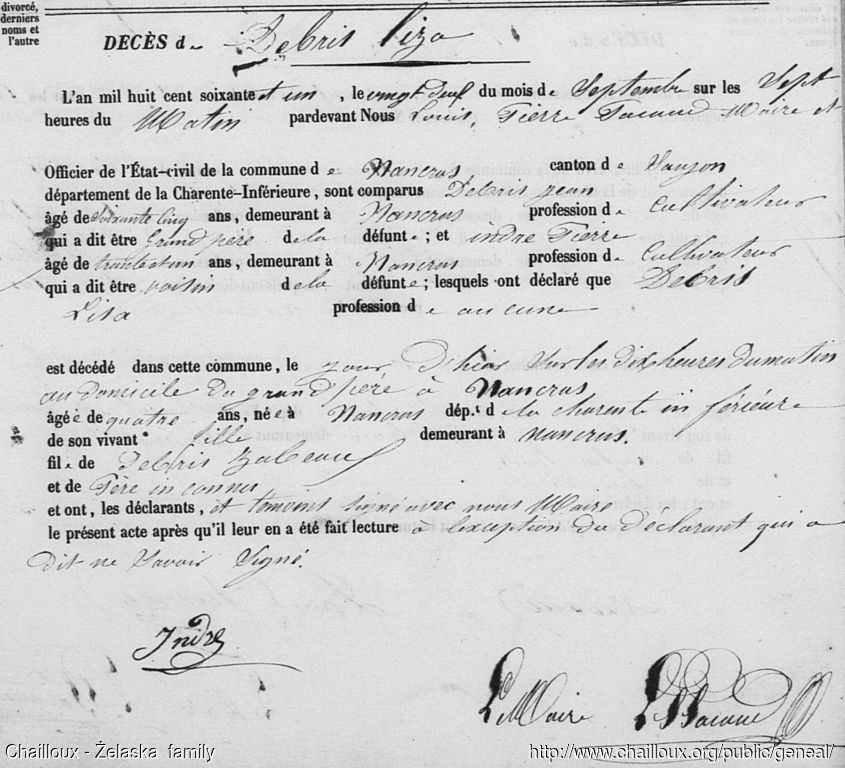 divorcé,
derniers
noms et
l'autre
DECÈS de Debris liza
L'an mil huit cent soixante et un, le vingt deux du mois de Septembre sur les Sept
heures du Matin pardevant Nous Louis, Pierre Maire et
Officier de l'État-civil de la commune de Nancras canton de Saujon
département de la Charente-Inférieure, sont comparus Debris jean
âgé de Soixante cinq ans, demeurant à Nancras profession de Cultivateur
qui a dit être Grand père de la défunte; et indre Pierre
âgé de trante et un ans, demeurant à Nancras profession de Cultivateur
qui a dit être voisin de la défunte; lesquels ont déclaré que Debris
Lisa profession de aucune
est décédé dans cette commune, le jour D'hier Sur les dix heures du matin
au domicile Du grand père à Nancras
âgée de quatre ans, née à Nancras dép.t de la charente in férieure
de son vivant fille demeurant à nancras.
file de Debris
et de Père in connu
et ont, les déclarants, et temoins signé avec nous Maire
le présent acte après qu'il leur en a été fait lecture à l'exception du Déclarant qui a
dit ne Savoir Signé.
Indre
Le Maire
Chailloux - Żelaska family
http://www.chailloux.org/public/geneal/